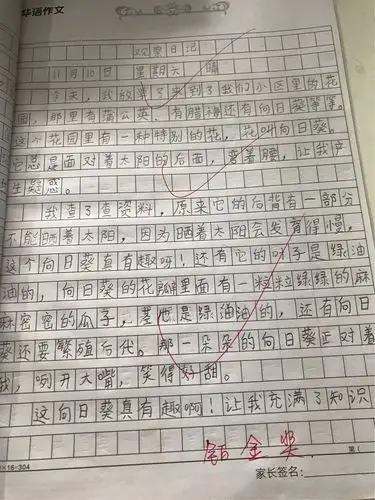 华语作文
观察日记
11月10日 星期天 晴
今天，我放学了来到了我们小区里的花
园，那里有蒲公英、有腊梅还有向日葵等等。
这个花园里有一种特别的花，花叫向日葵。
它总是面对着太阳的后面，弯着腰，让我产
生疑惑。
我查了查资料，原来它的后背有一部分
不能晒着太阳，因为晒着太阳会发育得慢，
这个向日葵真有趣呀！还有它的叶子是绿油
油的，向日葵的花瓣里面有一粒粒绿绿的麻
麻密密的瓜子，茎也是绿油油的，还有向日
葵还要繁殖后代。那一朵朵的向日葵正对着
我，咧开大嘴，笑得好甜。
这向日葵真有趣啊！让我充满了知识
金奖
×16-304
第（
家长签名：